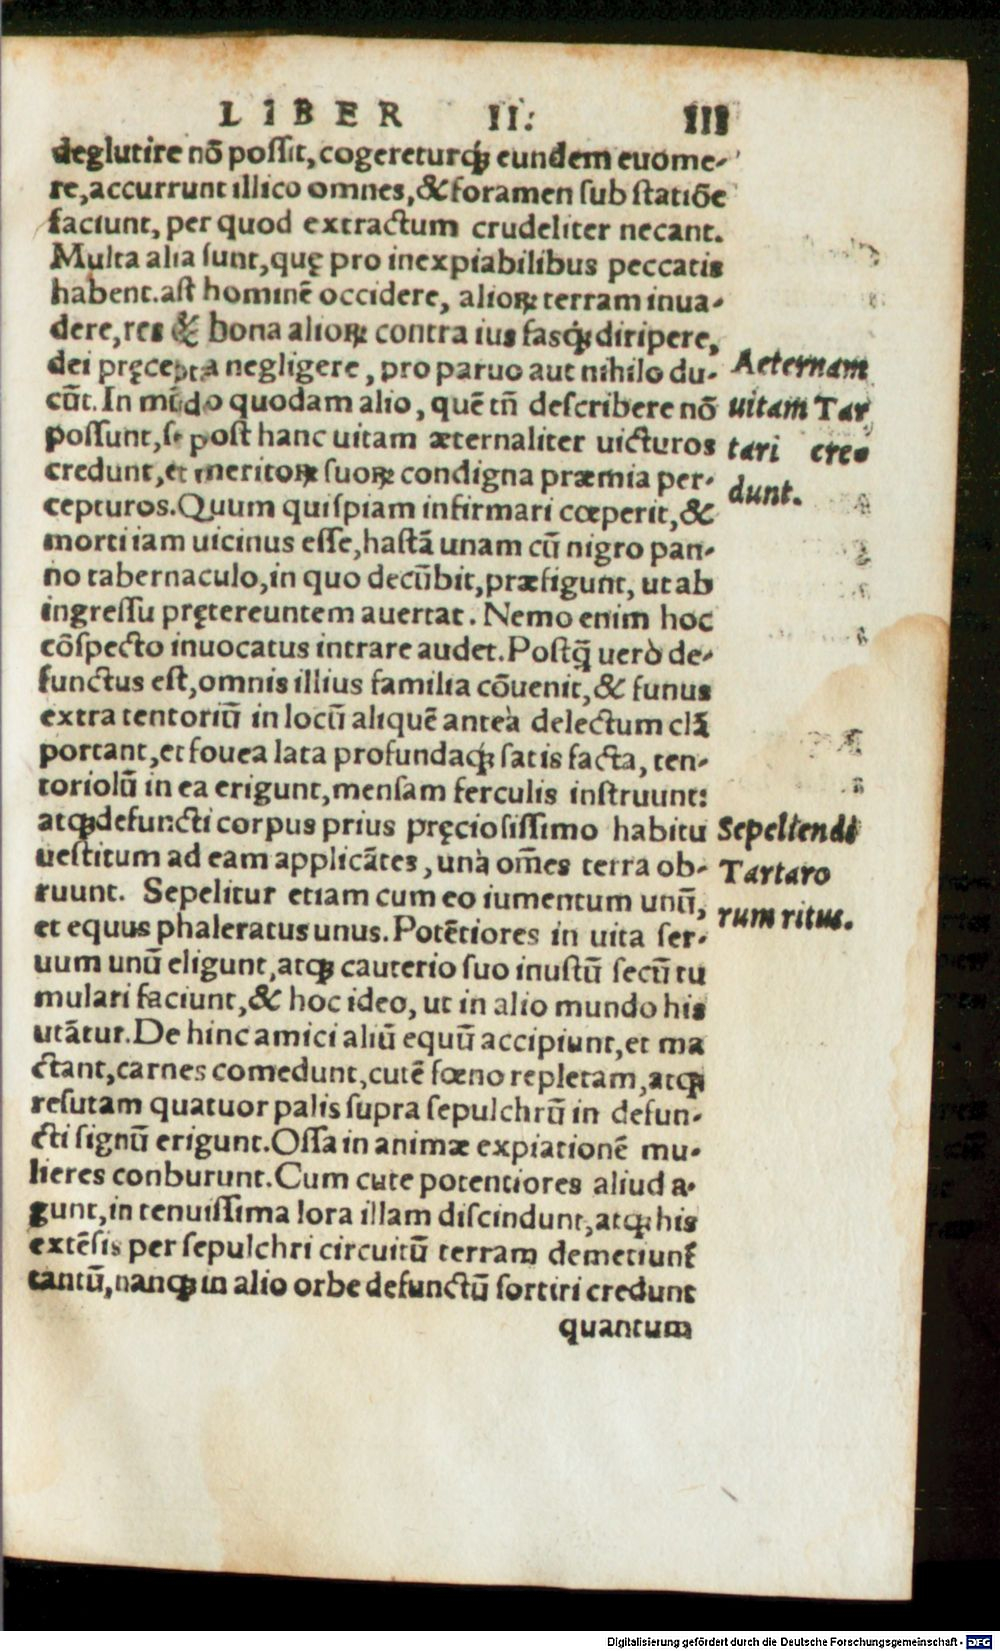 LIBER II: 111
deglutire nō possit, cogereturq́ꝫ eundem euome-
re, accurrunt illico omnes, & foramen sub statiōe
faciunt, per quod extractum crudeliter necant.
Multa alia sunt, quę pro inexpiabilibus peccatis
habent. ast hominē occidere, alioꝝ terram inua-
dere, res & bona alioꝝ contra ius fasq́ꝫ diripere,
dei pręcepta negligere, pro paruo aut nihilo du-
cūt. In mūdo quodam alio, quē tñ describere nō
possunt, se post hanc uitam æternaliter uicturos
credunt, et meritoꝝ suoꝝ condigna præmia per-
cepturos. Quum quispiam infirmari cœperit, &
morti iam uicinus esse, hastā unam cū nigro pan-
no tabernaculo, in quo decūbit, præfigunt, ut ab
ingressu prętereuntem auertat. Nemo enim hoc
cōspecto inuocatus intrare audet. Postq̄ uerò de-
functus est, omnis illius familia cōuenit, & funus
extra tentoriū in locū aliquē anteà delectum clā
portant, et fouea lata profundaq́ꝫ satis facta, ten-
toriolū in ea erigunt, mensam ferculis instruunt:
atqꝫ defuncti corpus prius pręciosissimo habitu
uestitum ad eam applicātes, unà om̄es terra ob-
ruunt. Sepelitur etiam cum eo iumentum unū,
et equus phaleratus unus. Potētiores in uita ser-
uum unū eligunt, atqꝫ cauterio suo inustū secū tu
mulari faciunt, & hoc ideo, ut in alio mundo his
utātur. De hinc amici aliū equū accipiunt, et ma
ctant, carnes comedunt, cutē fœno repletam, atqꝫ
resutam quatuor palis supra sepulchrū in defun-
cti signū erigunt. Ossa in animæ expiationē mu-
lieres conburunt. Cum cute potentiores aliud a-
gunt, in tenuissima lora illam discindunt, atqꝫ his
extēsis per sepulchri circuitū terram demetiunt̃
tantū, nanqꝫ in alio orbe defunctū sortiri credunt
quantum
Aeternam
uitam Tar
tari cre-
dunt.
Sepeliendi
Tartaro
rum ritus.
Digitalisierung gefördert durch die Deutsche Forschungsgemeinschaft - DFG